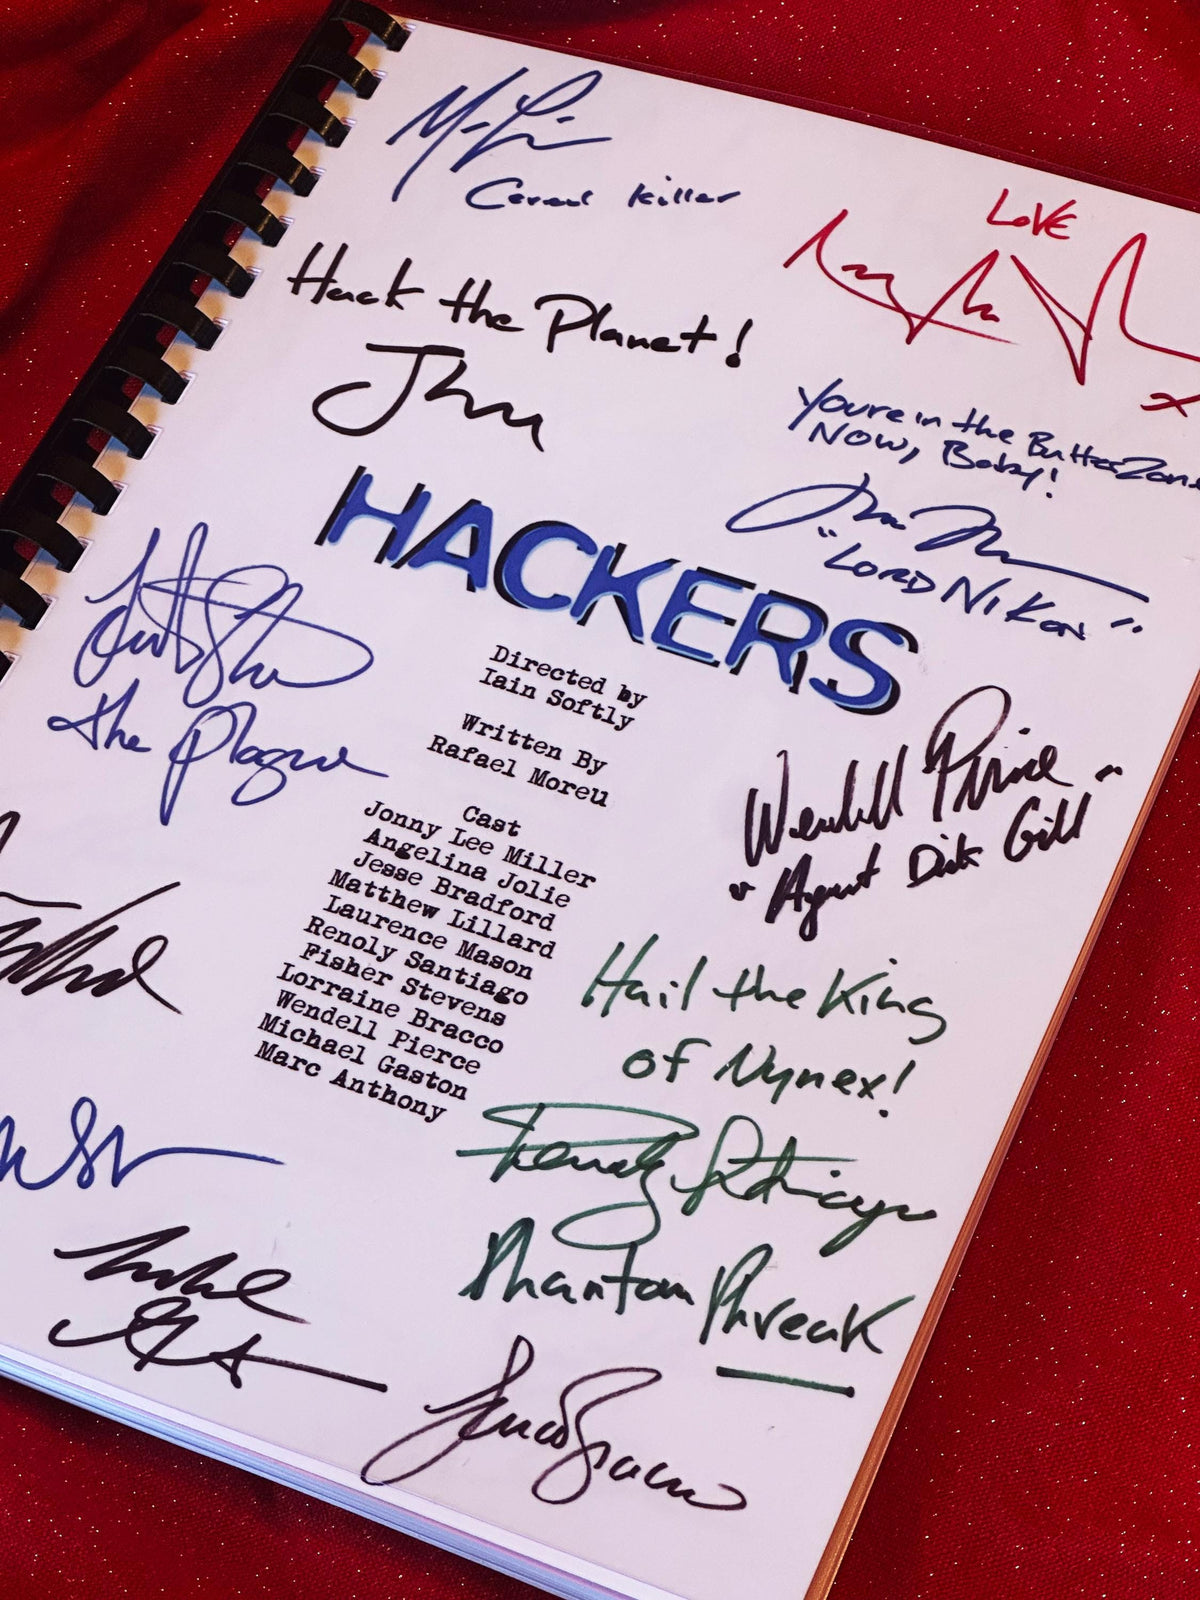 Cereal Killer
LOVE
Hack the Planet!
You're in the Butter Zone
NOW, Baby!
"LORD NIKON"
HACKERS
Directed by
Iain Softly
Written By
Rafael Moreu
the Plague
Wendell Pierce
"Agent Dick Gill"
Cast
Jonny Lee Miller
Angelina Jolie
Jesse Bradford
Matthew Lillard
Laurence Mason
Renoly Santiago
Fisher Stevens
Lorraine Bracco
Wendell Pierce
Michael Gaston
Marc Anthony
Hail the King
of Nynex!
Renoly Santiago
Phantom Phreak